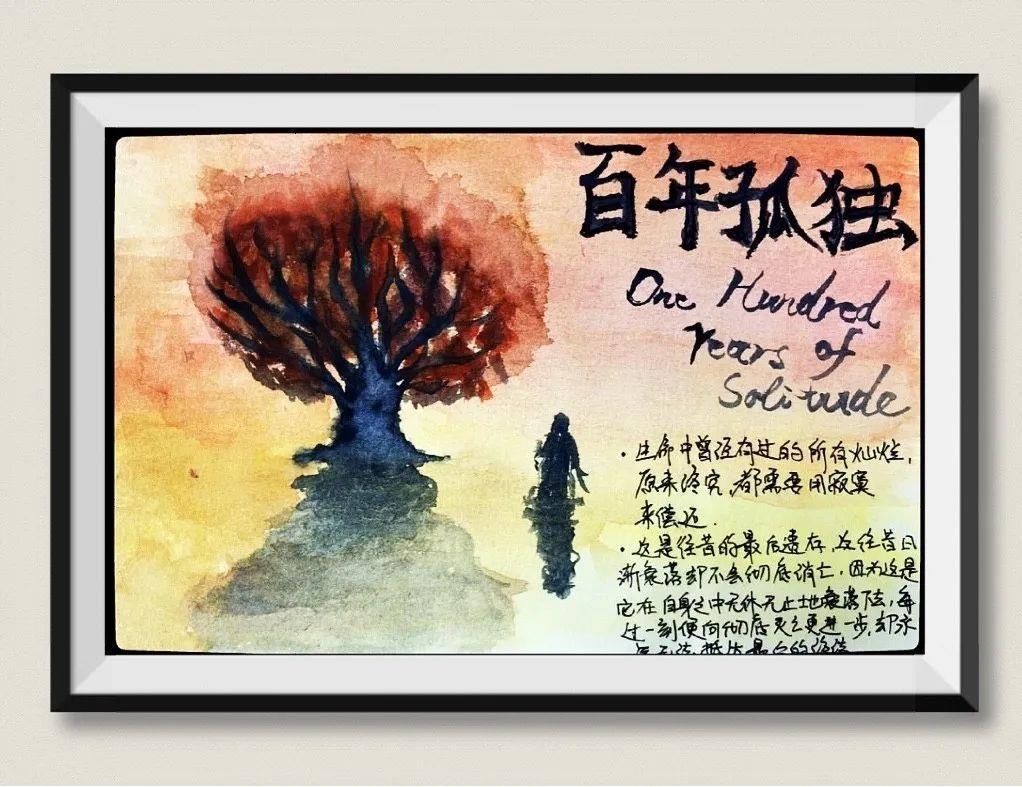 百年孤独
One Hundred
Years of
Solitude
·生命中曾经有过的所有灿烂,
原来终究,都需要用寂寞
来偿还.
·这是往昔的最后遗存,这往昔日
渐衰落却不会彻底消亡,因为这是
它在自身之中无休无止地衰落下去,每
过一刻便向彻底灭亡更进一步,却永